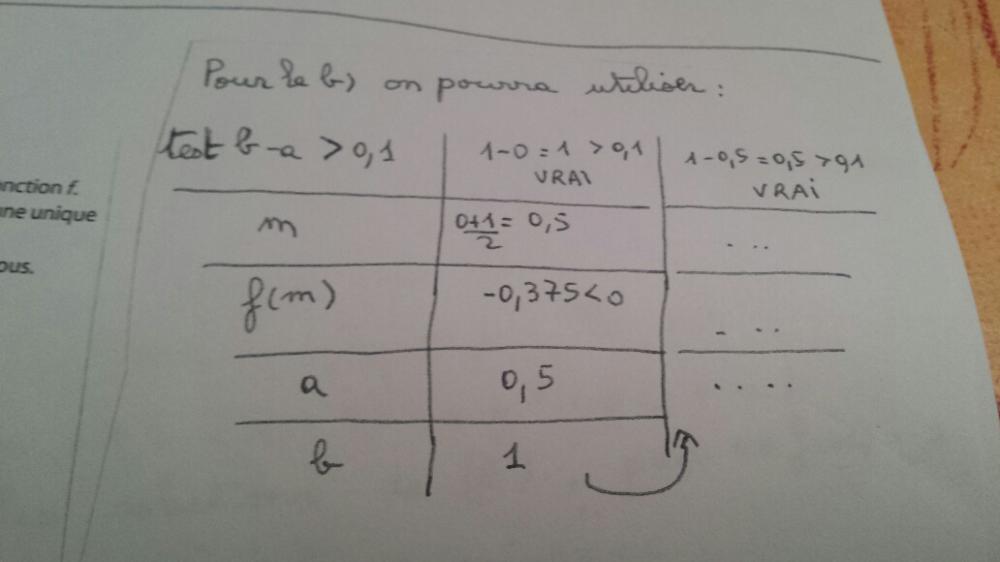 Pour le b) on pourra utiliser :
test b-a > 0,1
1-0 = 1 > 0,1
VRAI
1-0,5 = 0,5 > 0,1
VRAI
m
0+1/2 = 0,5
. . .
f(m)
-0,375 < 0
- . .
a
0,5
. . . .
b
1
onction f.
une unique
ous.